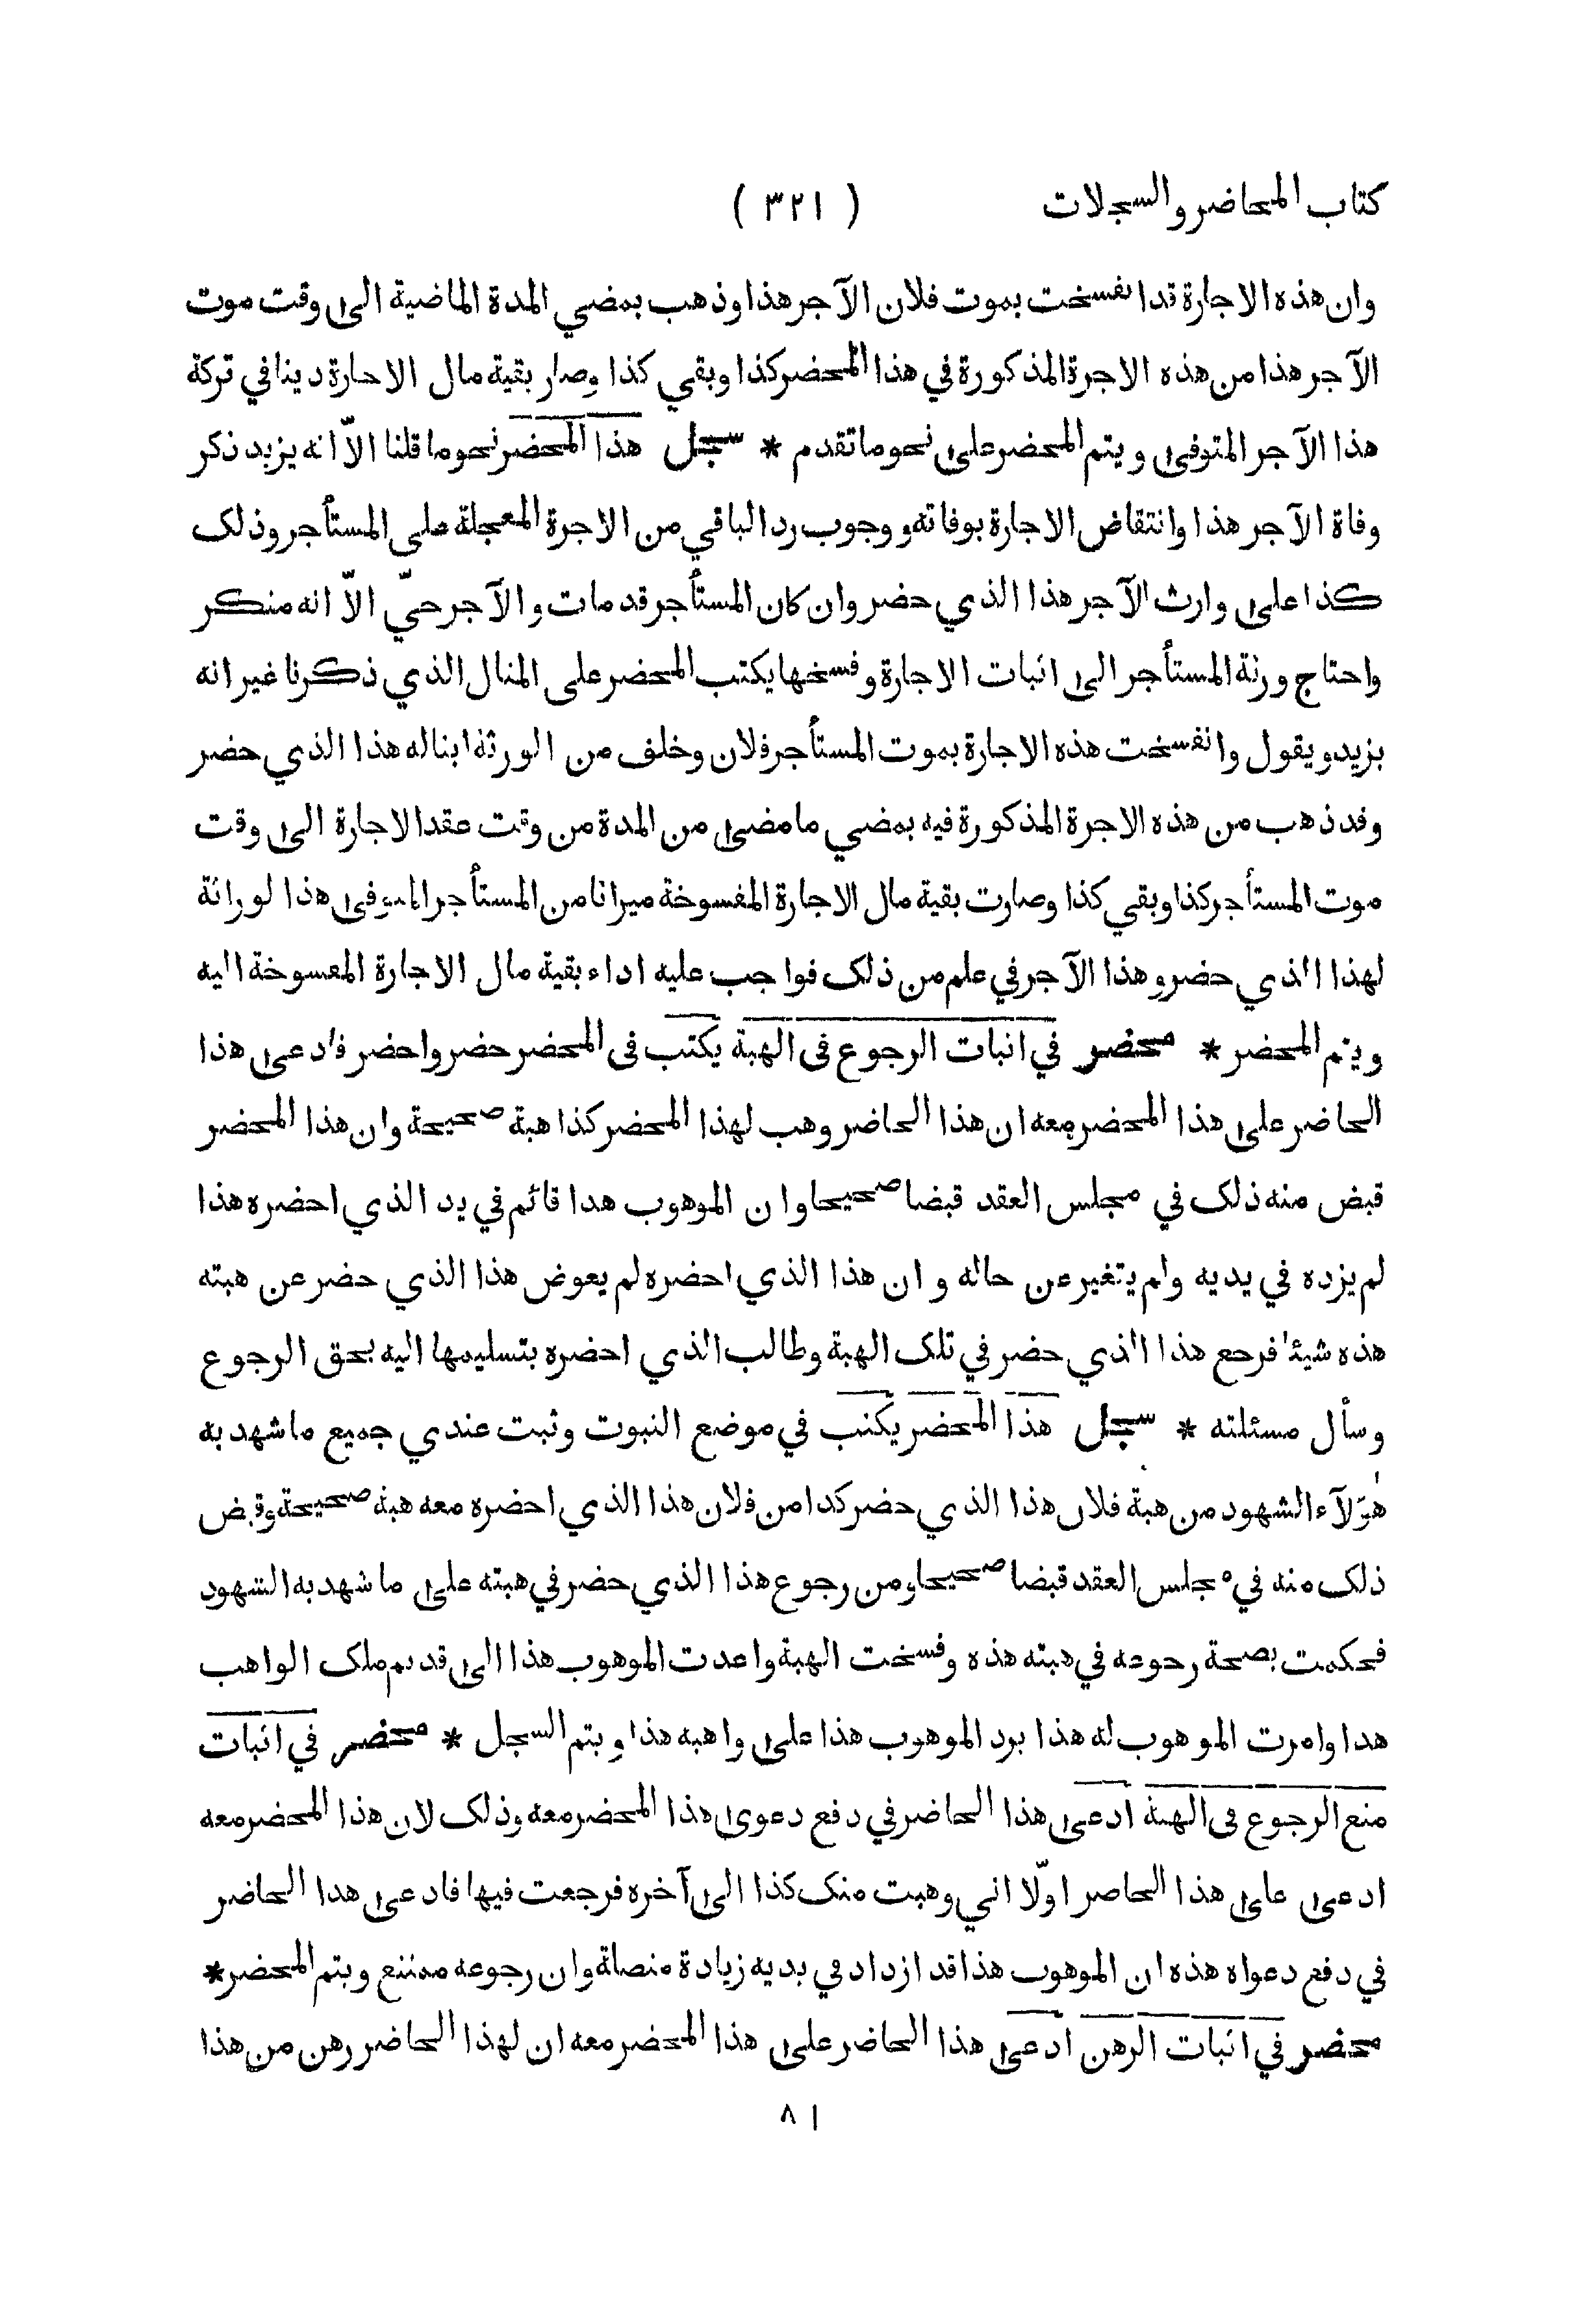 كتاب المحاضر والسجلات ( ٣٢١ )
وان هذه الاجارة قد انفسخت بموت فلان الآجر هذا وذهب بمضي المدة الماضية الى وقت موت
الآجر هذا من هذه الاجرة المذكورة في هذا المحضر كذا وبقي كذا وصار بقية مال الاجارة دينا في تركة
هذا الآجر المتوفى ويتم المحضر على نحو ما تقدم * سجل هذا المحضر نحو ما قلنا الاّ انه يزيد ذكر
وفاة الآجر هذا وانتقاض الاجارة بوفاته ووجوب رد الباقي من الاجرة المعجلة على المستأجر وذلك
كذا على وارث الآجر هذا الذي حضر وان كان المستأجر قد مات والآجر حيّ الاّ انه منكر
واحتاج ورثة المستأجر الى اثبات الاجارة وفسخها يكتب المحضر على المثال الذي ذكرنا غير انه
يزيد ويقول وانفسخت هذه الاجارة بموت المستأجر فلان وخلف من الورثة ابنا له هذا الذي حضر
وقد ذهب من هذه الاجرة المذكورة فيه بمضي ما مضى من المدة من وقت عقد الاجارة الى وقت
موت المستأجر كذا وبقي كذا وصارت بقية مال الاجارة المفسوخة ميراثا من المستأجر المتوفى هذا لوراثة
لهذا الذي حضر وهذا الآجر في علم من ذلك فواجب عليه اداء بقية مال الاجارة المفسوخة اليه
ويتم المحضر * محضر في اثبات الرجوع في الهبة يكتب في المحضر حضر واحضر فادعى هذا
الحاضر على هذا المحضر معه ان هذا الحاضر وهب لهذا المحضر كذا هبة صحيحة وان هذا المحضر
قبض منه ذلك في مجلس العقد قبضا صحيحا وان الموهوب هذا قائم في يد الذي احضره هذا
لم يزده في يديه ولم يتغير عن حاله و ان هذا الذي احضره لم يعوض هذا الذي حضر عن هبته
هذه شيئا فرجع هذا الذي حضر في تلك الهبة وطالب الذي احضره بتسليمها اليه بحق الرجوع
وسأل مسئلته * سجل هذا المحضر يكتب في موضع الثبوت وثبت عندي جميع ما شهد به
هؤلآء الشهود من هبة فلان هذا الذي حضر كذا من فلان هذا الذي احضره معه هبة صحيحة وقبض
ذلك منه في مجلس العقد قبضا صحيحا ومن رجوع هذا الذي حضر في هبته على ما شهد به الشهود
فحكمت بصحة رجوعه في هبته هذه وفسخت الهبة واعدت الموهوب هذا الى قديم ملك الواهب
هذا وامرت الموهوب له هذا برد الموهوب هذا على واهبه هذا ويتم السجل * محضر في اثبات
منع الرجوع في الهبة ادعى هذا الحاضر في دفع دعوى هذا المحضر معه وذلك لان هذا المحضر معه
ادعى على هذا الحاضر اولّا اني وهبت منك كذا الى آخره فرجعت فيها فادعى هذا الحاضر
في دفع دعواه هذه ان الموهوب هذا قد ازداد في يديه زيادة متصلة وان رجوعه ممتنع ويتم المحضر *
محضر في اثبات الرهن ادعى هذا الحاضر على هذا المحضر معه ان لهذا الحاضر رهن من هذا
٨١